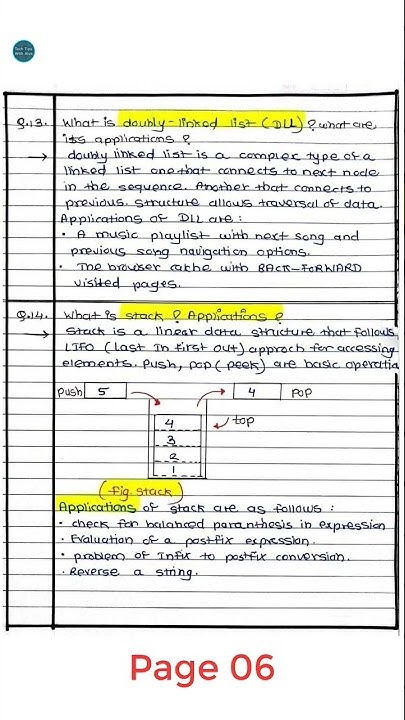 Tech Tips
With Alvit
Q.13. What is doubly-linked list (DLL) ? what are
its applications ?
→ doubly linked list is a complex type of a
linked list one that connects to next node
in the sequence. Another that connects to
previous. structure allows traversal of data.
Applications of DLL are :
• A music playlist with next song and
previous song navigation options.
• The browser cache with BACK-FORWARD
visited pages.
Q.14. What is stack ? Applications ?
→ Stack is a linear data structure that follows
LIFO (last In first out) approch for accessing
elements. push, pop (peek) are basic operatio
push 5 4 pop
4 top
3
2
1
(fig. stack)
Applications of stack are as follows :
• check for balanced paranthesis in expression
• Evaluation of a postfix expression.
• problem of Infix to postfix conversion.
• Reverse a string.
Page 06